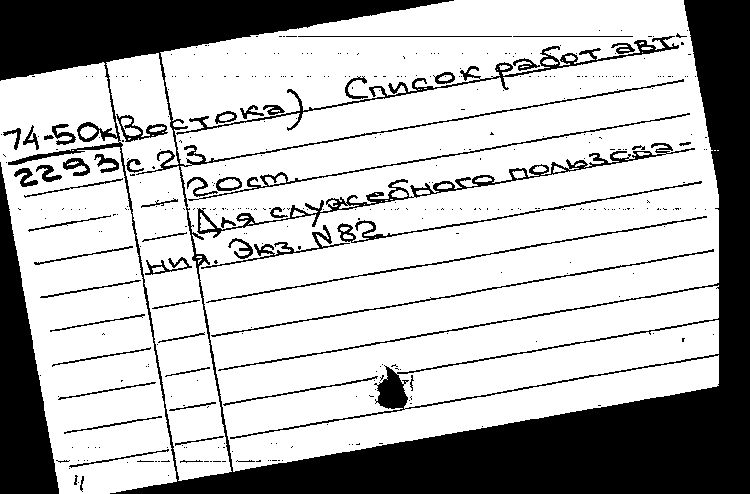 74-50к Востока). Список работ авт.:
2293 с.23.
20 ст.
Для служебного пользова-
ния. Экз. N82.